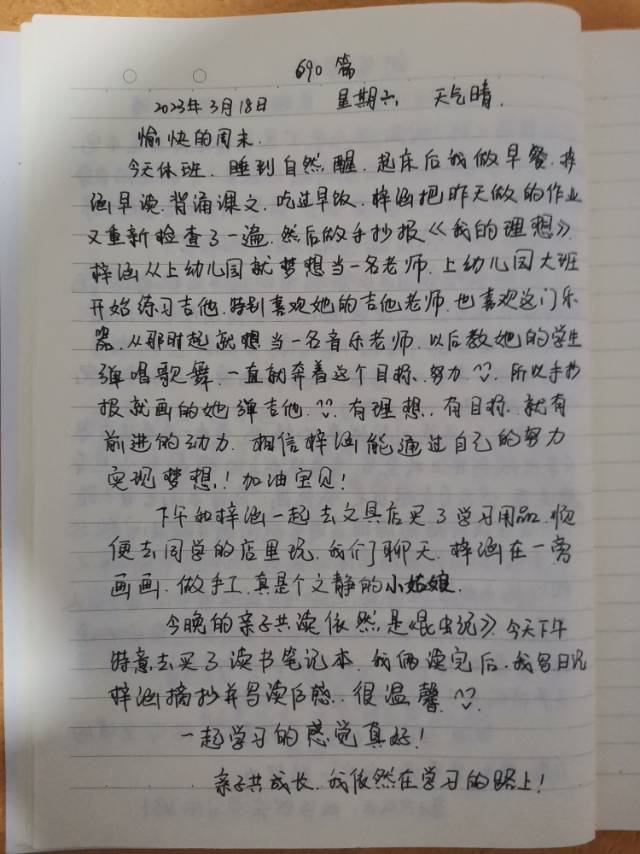 690 篇
2023年3月18日 星期六 天气晴.
愉快的周末.
今天休班. 睡到自然醒. 起床后我做早餐. 梓
涵早读. 背诵课文. 吃过早饭. 梓涵把昨天做的作业
又重新检查了一遍. 然后做手抄报《我的理想》.
梓涵从上幼儿园就梦想当一名老师. 上幼儿园大班
开始练习吉他. 特别喜欢她的吉他老师. 也喜欢这门乐
器. 从那时起就想当一名音乐老师. 以后教她的学生
弹唱歌舞. 一直朝奔着这个目标. 努力^_^. 所以手抄
报就画的她弹吉他. ^_^. 有理想. 有目标. 就有
前进的动力. 相信梓涵能通过自己的努力
实现梦想.! 加油宝贝!
下午和梓涵一起去文具店买了学习用品. 顺
便去同学的店里玩. 我们聊天. 梓涵在一旁
画画. 做手工. 真是个文静的小姑娘.
今晚的亲子共读依然是《昆虫记》. 今天下午
特意去买了读书笔记本. 我俩读完后. 我写日记
梓涵摘抄并写读后感. 很温馨. ^_^.
一起学习的感觉真好!
亲子共成长. 我依然在学习的路上!